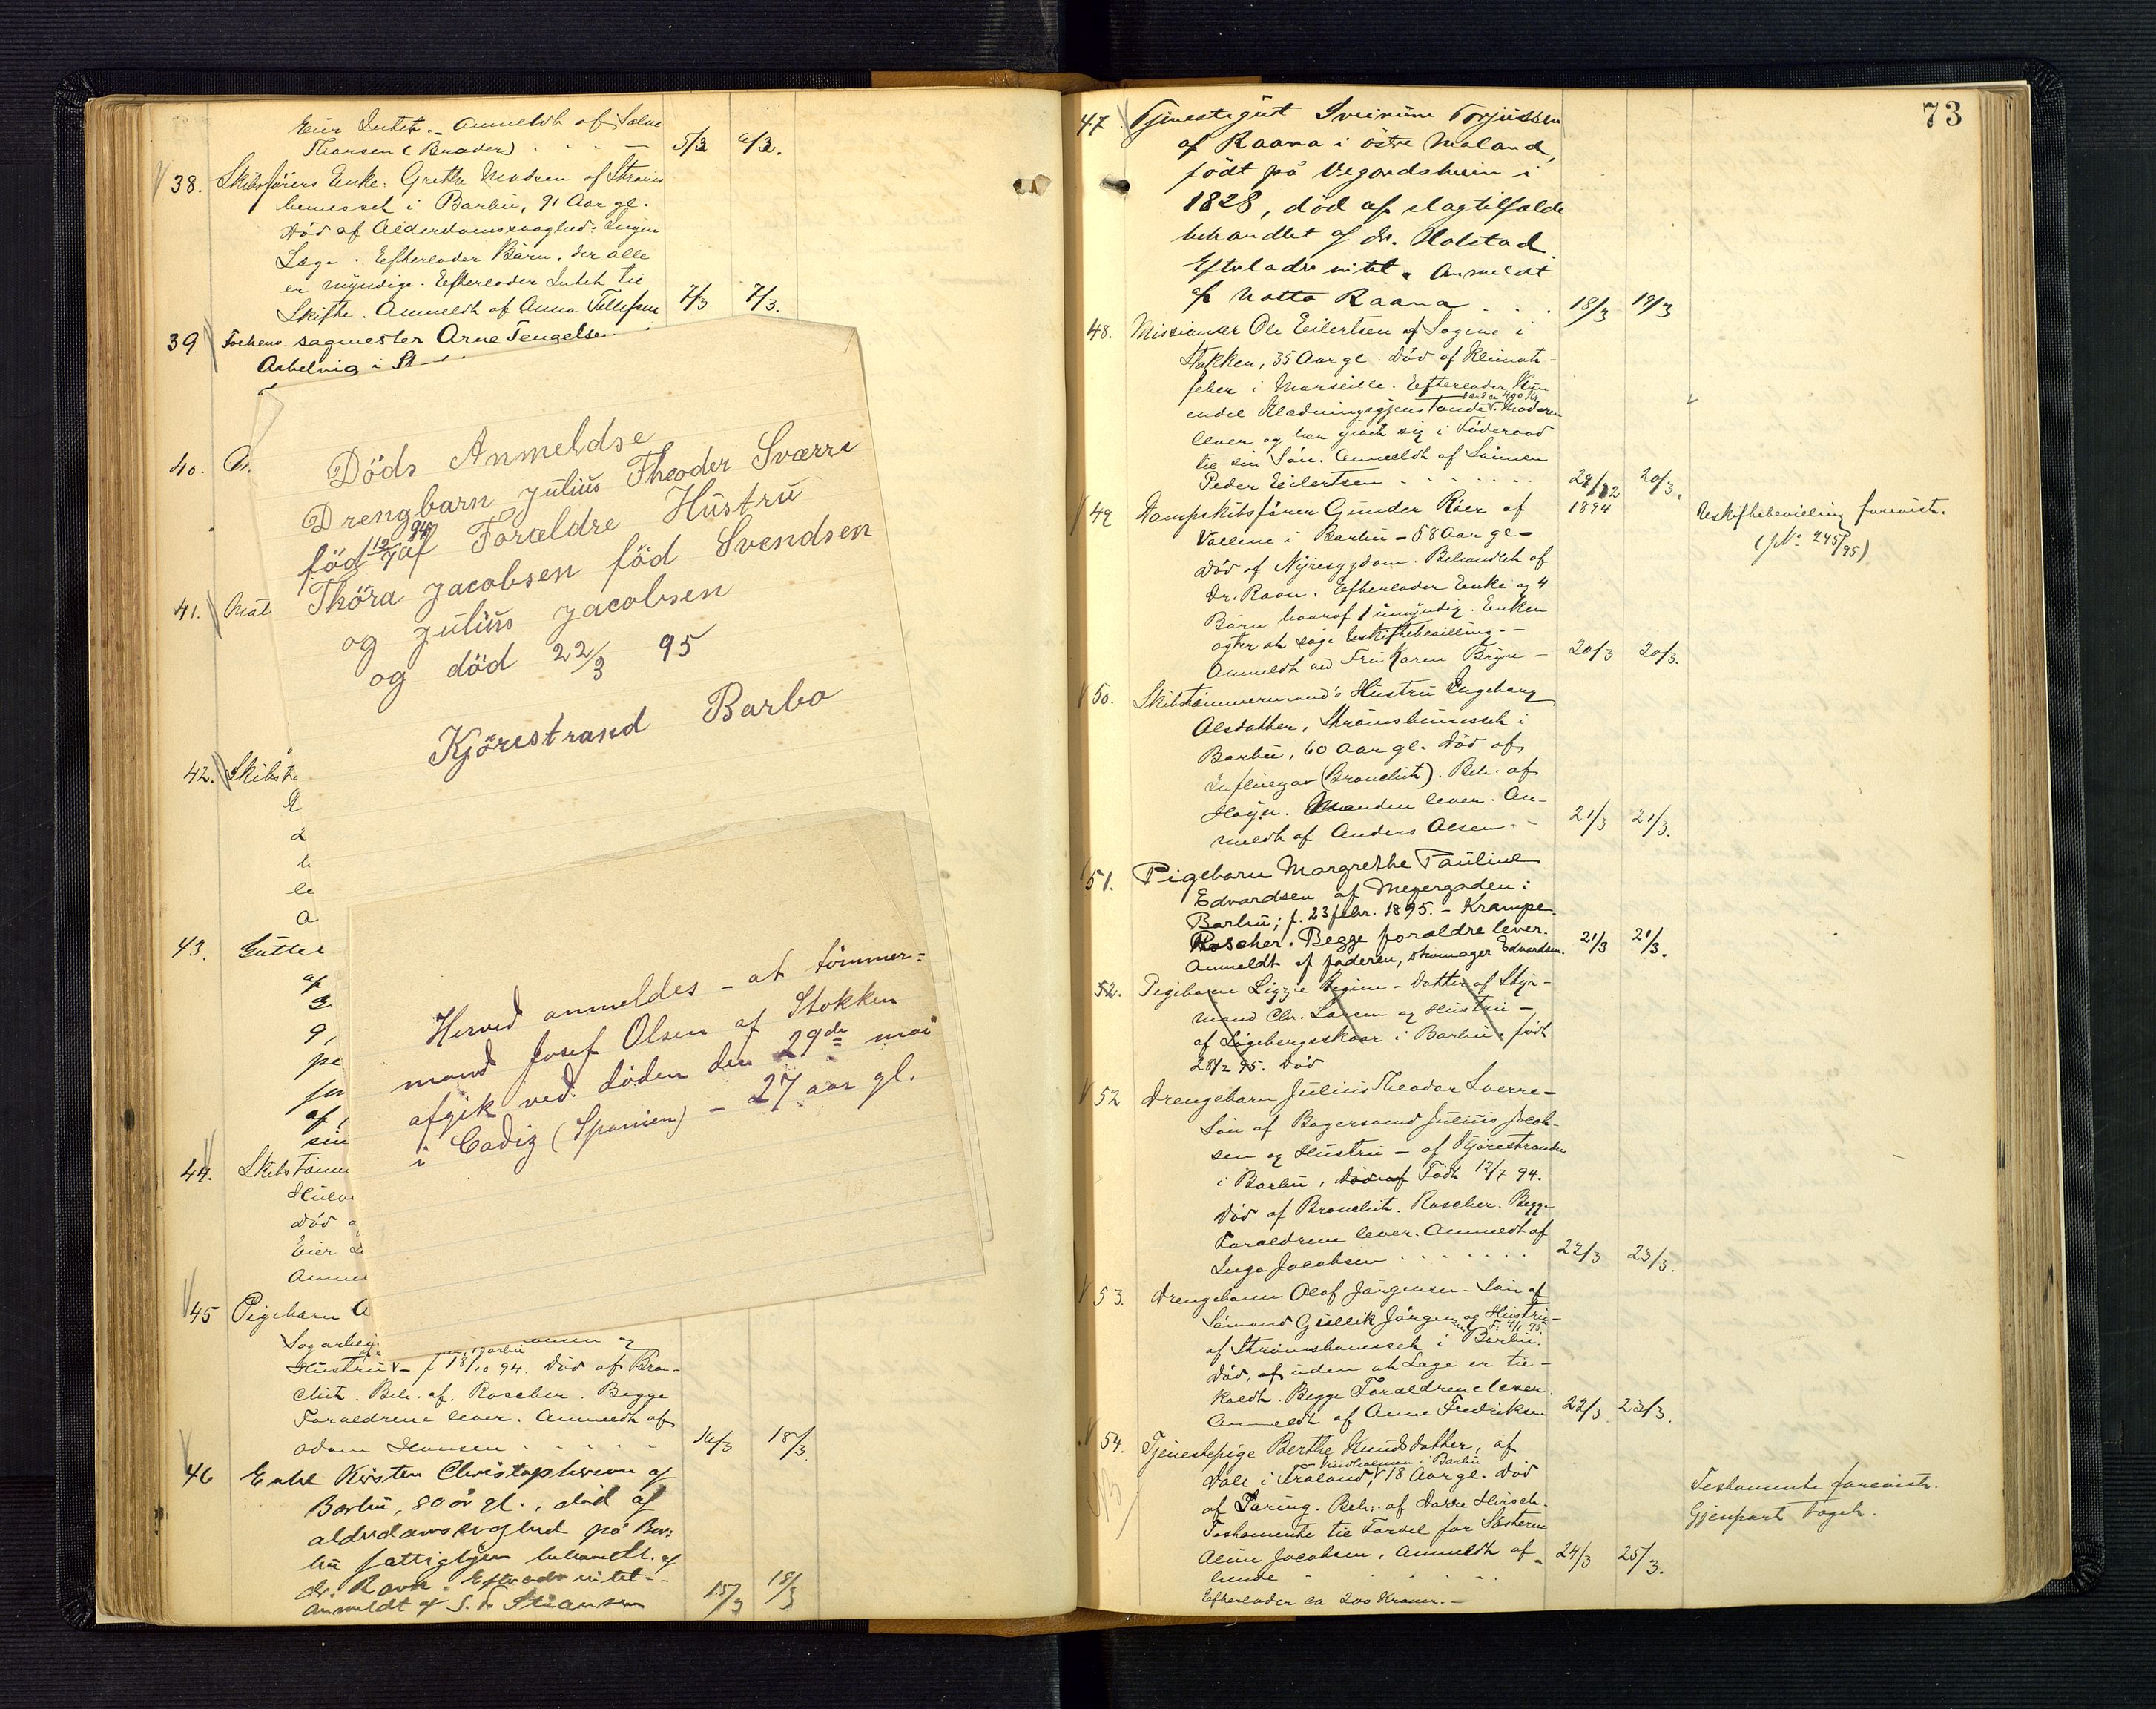 Eier Intet. Anmeldt af Salve
Thorsen (Broder) 5/3 6/3.
38. Skibsførers Enke: Grethe Madsen af Strøms
bunesset i Barbu, 91 Aar gl.
Død af Alderdomssvaghed. Ingen
Læge. Efterlader Børn, der alle
er myndige. Efterlader Intet til
Skifte. Anmeldt af Anna Tellefsen 7/3 7/3.
39. Forhenv. sagmester Arne Tengelsen
Aabelvig i St
40.
41. Mat
42. Skibst
43. Gutteb
af
9,
pe
af,
sin
44. Skibstømm
Død a
Eier
Anme
45 Pigebarn A
Sagarbej
Hustru - f 18/10 94. Død af Bron-
chit. Beh. af. Roscher. Begge
Forældrene lever. Anmeldt af
Adam Hansen 16/3 18/3.
46 Enke Kirsten Christophersen af
Barbu, 80 år gl., død af
alderdomssvaghed på Bar-
bu fattiglgem behandlt. af
dr. Ravn. Efterlader intet.
Anmeldt af S. Stiansen 15/3 18/3
Döds Anmeldse
Drengbarn Julius Theoder Sværre
föd 12/7 94 af Forældre Hustru
Thöra Jacobsen föd Svendsen
og Julius Jacobsen
og död 22/3 95
Kjörestrand Barbo
Herved anmeldes - at tømmer=
mand Josef Olsen af Stokken
afgik ved døden den 29de mai
i Cadiz (Spanien) - 27 aar gl.
73
47 Tjenestegut Sveinum Torjussen
af Raana i östre Moland,
födt på Vegordsheien i
1828, död af slagtilfælde
behandlet af dr. Holstad
Efterlader intet. Anmeldt
af Notto Raana 18/3 19/3
48. Missionær Ole Eilertsen af Sagene i
Stokken, 35 Aar gl. Død af Klimat-
feber i Marseille. Efterlader Kun
endel Klædningsgjenstande. Moderen
lever og har givet sig i Føderaad
til sin Søn. Anmeldt af Sønnen
Peder Eilertsen 29/12 20/3.
1894
49 Dampskibsfører Gunder Röer af
Vallene i Barbu - 58 Aar gl -
Død af Nyresygdom. Behandlet af
Dr. Ravn. Efterlader Enke og 4
Børn hvoraf 1 umyndig. Enken
agter at søge Uskiftebevilling. -
Anmeldt ved Fru Karen Bryn - 20/3 20/3.
Uskiftebevilling forevist.
(J.No 245/95)
50. Skibstømmermand's Hustru Ingeborg
Olsdatter, Strømsbunesset i
Barbu, 60 Aar gl. Død af
Influenza (Bronchit). Beh. af
Høyer. Manden lever. An-
meldt af Anders Olsen. - 21/3 21/3.
51. Pigebarn Margrethe Pauline
Edvardsen af Meyergaden i
Barbu; f. 23 febr. 1895. - Krampe.
Roscher. Begge forældre lever.
Anmeldt af faderen, skomager Edvardsen. 21/3 21/3.
52. Pigebarn Lizzie Regine - Datter af Styr-
mand Chr. Larsen og Hustru -
af Løgebergsskaar i Barbu, født
28/2 95. Død
52 Drengebarn Julius Theodor Sverre -
Søn af Bagersvend Julius Jacob-
sen og Hustru - af Kjørestranden
i Barbu, Død af Født 12/7 94.
Død af Bronchit. Roscher. Begge
Forældrene lever. Anmeldt af
Inga Jacobsen 22/3 23/3.
53. Drengebarn Olaf Jørgensen - Søn af
Sømand Gullik Jørgensen og Hustru -
af Strømsbunesset i Barbu.
Død, af uden at Læge er til-
kaldt. Begge Forældrene lever.
Anmeldt af Anne Fredriksen 22/3 23/3.
54. Tjenestepige Berthe Knudsdatter, af
Vindholmen i Barbu
Dale i Froland, 18 Aar gl. Død
af Tæring. Beh. af Dorre Hirsch.
Testamente til Fordel for Søsteren
Aline Jacobsen. Anmeldt af 24/3 25/3.
hende
Efterlader ca 200 Kroner. -
Testamente forevist.
Gjenpart taget.